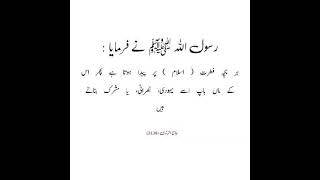 رسول اللہ ﷺ نے فرمایا :
ہر بچہ فطرت ( اسلام ) پر پیدا ہوتا ہے پھر اس
کے ماں باپ اسے یہودی، نصرانی، یا مشرک بناتے
ہیں